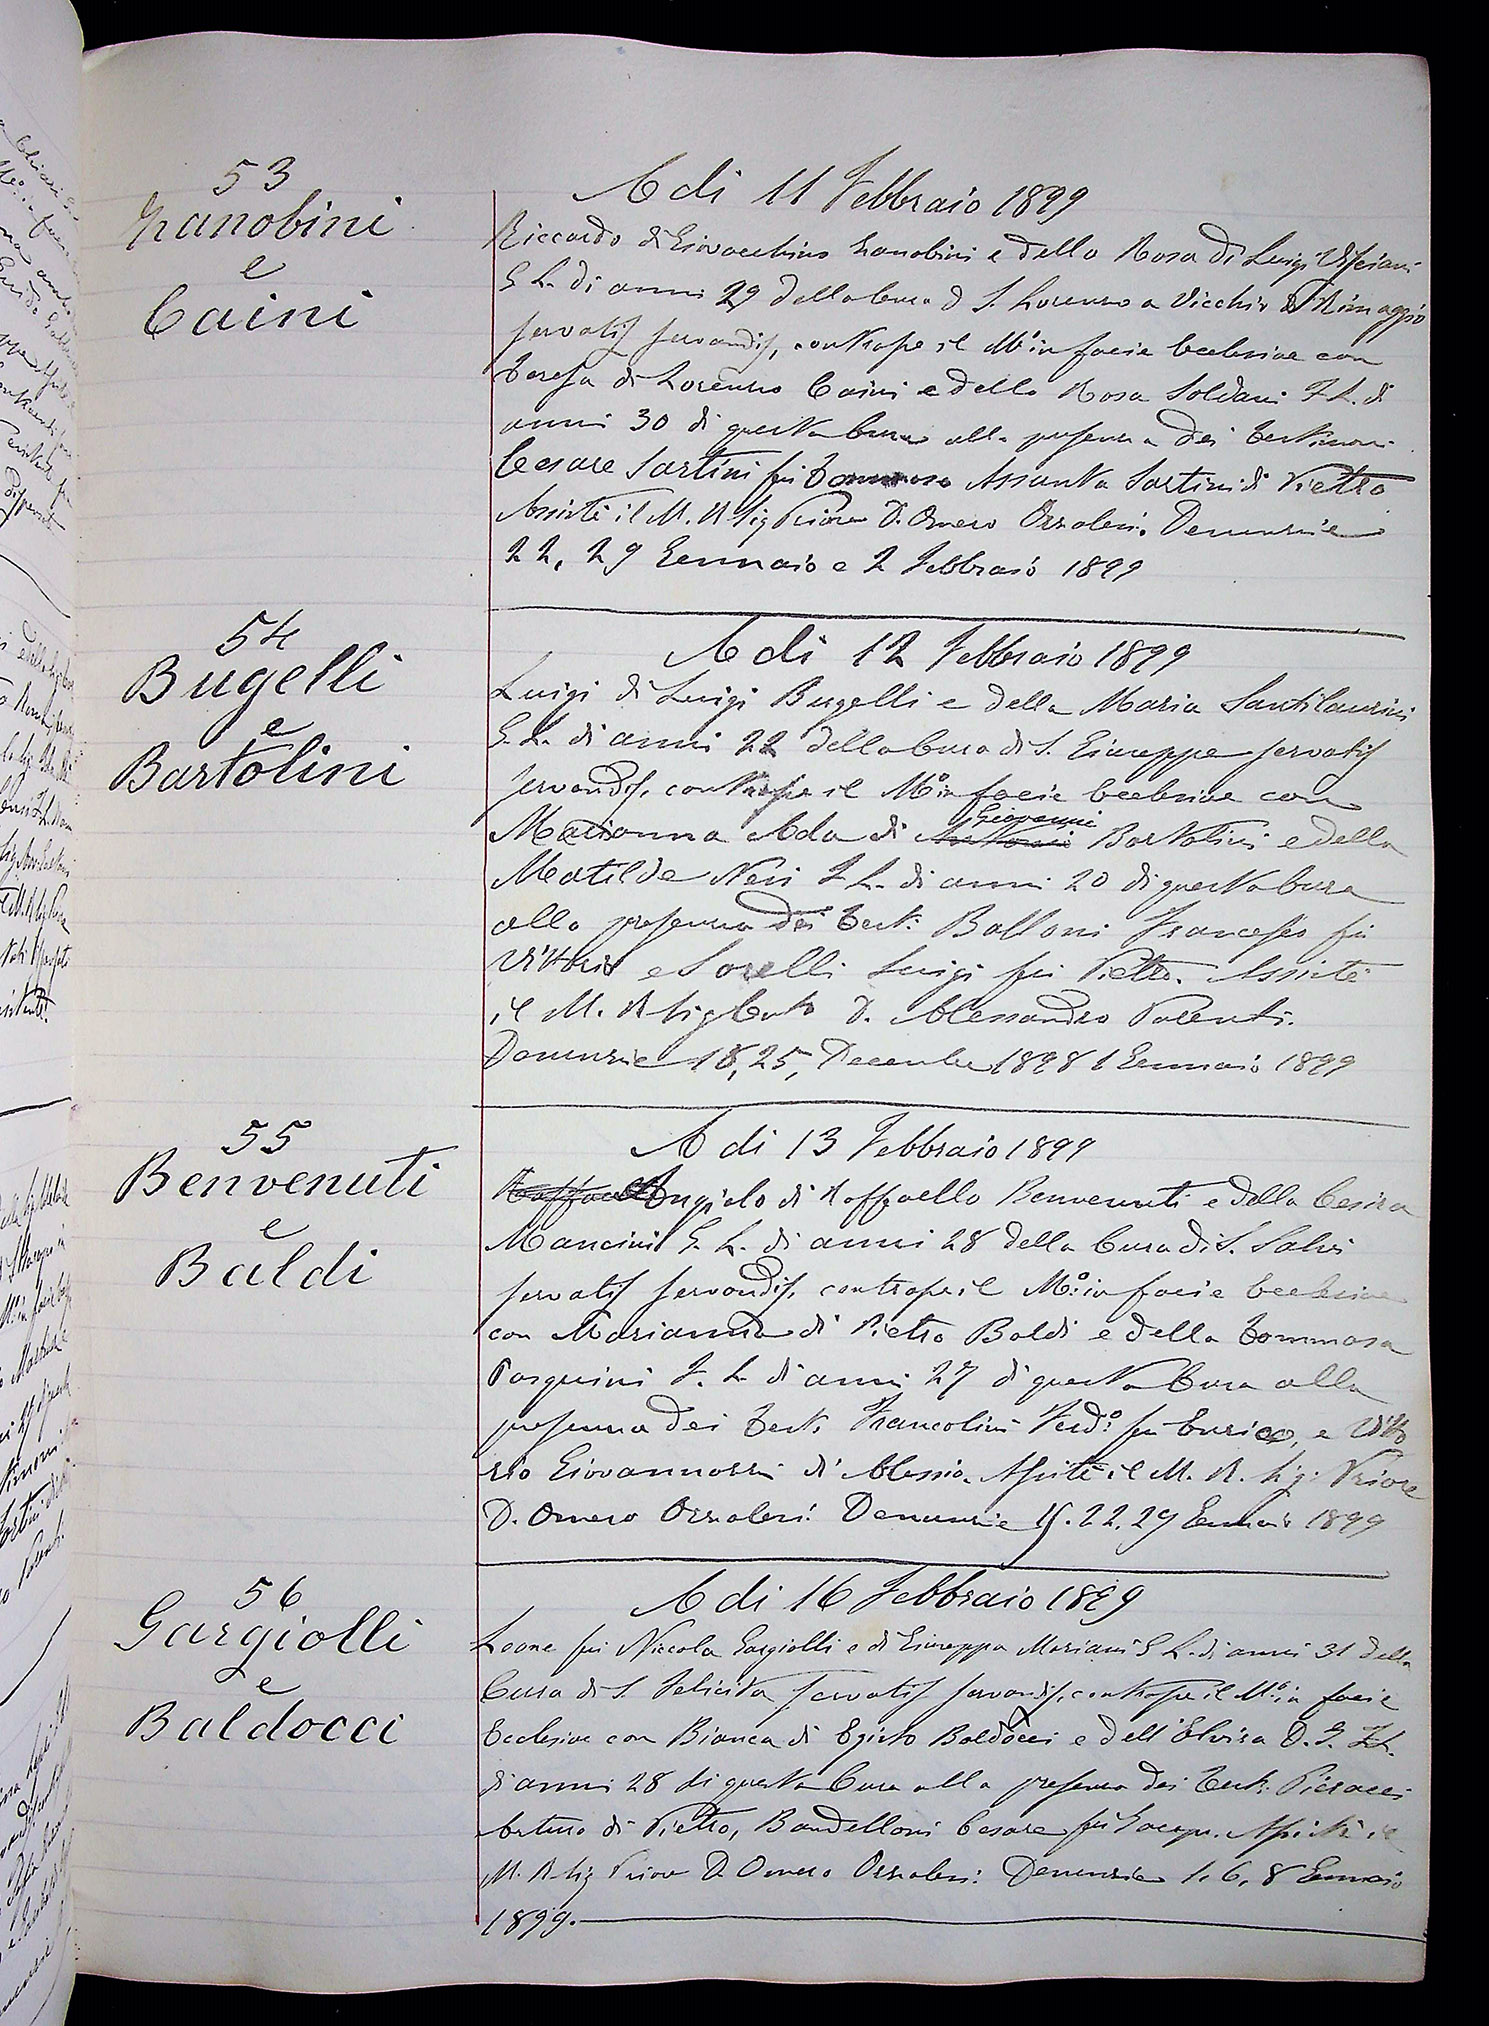 53
Zanobini
e
Caini
A di 11 Febbraio 1899
Riccardo di Giovacchino Zanobini e della Rosa di Luigi
G. L. di anni 29 della Cura di S. Lorenzo a Vicchio di Rimaggio
servatis servandis, contrasse il Mº in facie Ecclesiae con
Teresa di Lorenzo Caini e della Rosa Soldani F. L. di
anni 30 di questa Cura alla presenza dei Testimoni
Cesare Sartini fu Tommaso Assunta Sartini di Pietro
Assistè il M. R. Sig Priore D. Omero Orzalesi. Denunzie
22, 29 Gennaio e 2 Febbraio 1899
54
Bugelli
e
Bartolini
A di 12 Febbraio 1899
Luigi di Luigi Bugelli e della Maria Santilaurini
G. L. di anni 22 della Cura di S. Giuseppe servatis
servandis, contrasse il Mº in facie Ecclesiae con
Giovanni
Marianna Ada di Antonio Bartolini e della
Matilde Neri F. L. di anni 20 di questa Cura
alla presenza dei Test: Balloni Francesco fu
Vittorio e Sorelli Luigi fu Pietro. Assistè
il M. R. Sig Curato D. Alessandro Parenti.
Denunzie 18, 25, Decembre 1898 1 Gennaio 1899
55
Benvenuti
e
Baldi
A di 13 Febbraio 1899
Raffaello Angiolo di Raffaello Benvenuti e della Cesira
Mancini G. L. di anni 28 della Cura di S. Salvi
servatis servandis, contrasse il Mº: in facie Ecclesiae
con Marianna di Pietro Baldi e della Tommasa
Pasquini F. L. di anni 27 di questa Cura alla
presenza dei Test. Francolini Ferdº: fu Enrico, e Vitto
rio Giovannozzi di Alessio. Assistè il M. R. Sig: Priore
D. Omero Orzalesi: Denunzie 15. 22. 29 Gennaio 1899
56
Gargiolli
e
Baldocci
A di 16 Febbraio 1899
Leone fu Niccola Gargiolli e di Giuseppa Mariani G. L. di anni 31 della
Cura di S. Felicita servatis servandis, contrasse il Mº: in facie
Ecclesiae con Bianca di Egisto Baldocci e dell'Elvira D. G. F. L.
di anni 28 di questa Cura alla presenza dei Test: Pieracci
Arturo di Pietro, Bandelloni Cesare fu Assistè il
M. R. Sig Priore D. Omero Orzalesi: Denunzie 1. 6, 8 Gennaio
1899.